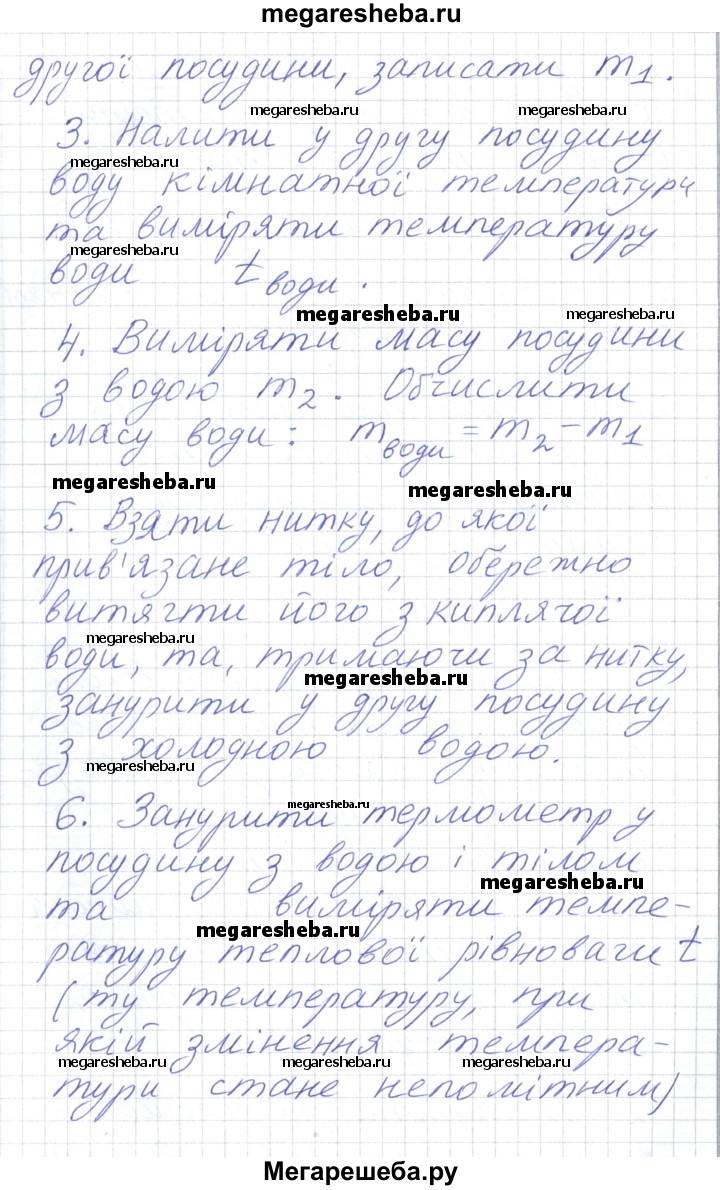 megaresheba.ru
другої посудини, записати m₁.
megaresheba.ru megaresheba.ru
3. Налити у другу посудину
megaresheba.ru
воду кімнатної температури
та виміряти температуру
megaresheba.ru
води t води.
megaresheba.ru megaresheba.ru
4. Виміряти масу посудини
з водою m₂. Обчислити
масу води: m води = m₂ - m₁
megaresheba.ru megaresheba.ru
5. Взяти нитку, до якої
прив'язане тіло, обережно
витягти його з киплячої
megaresheba.ru
води, та, тримаючи за нитку,
megaresheba.ru
занурити у другу посудину
з холодною водою.
megaresheba.ru
megaresheba.ru
6. Занурити термометр у
посудину з водою і тілом
megaresheba.ru
та виміряти темпе-
megaresheba.ru
ратуру теплової рівноваги t
(ту температуру, при
якій змінення темпера-
megaresheba.ru megaresheba.ru megaresheba.ru
тури стане непомітним)
Мегарешеба.ру